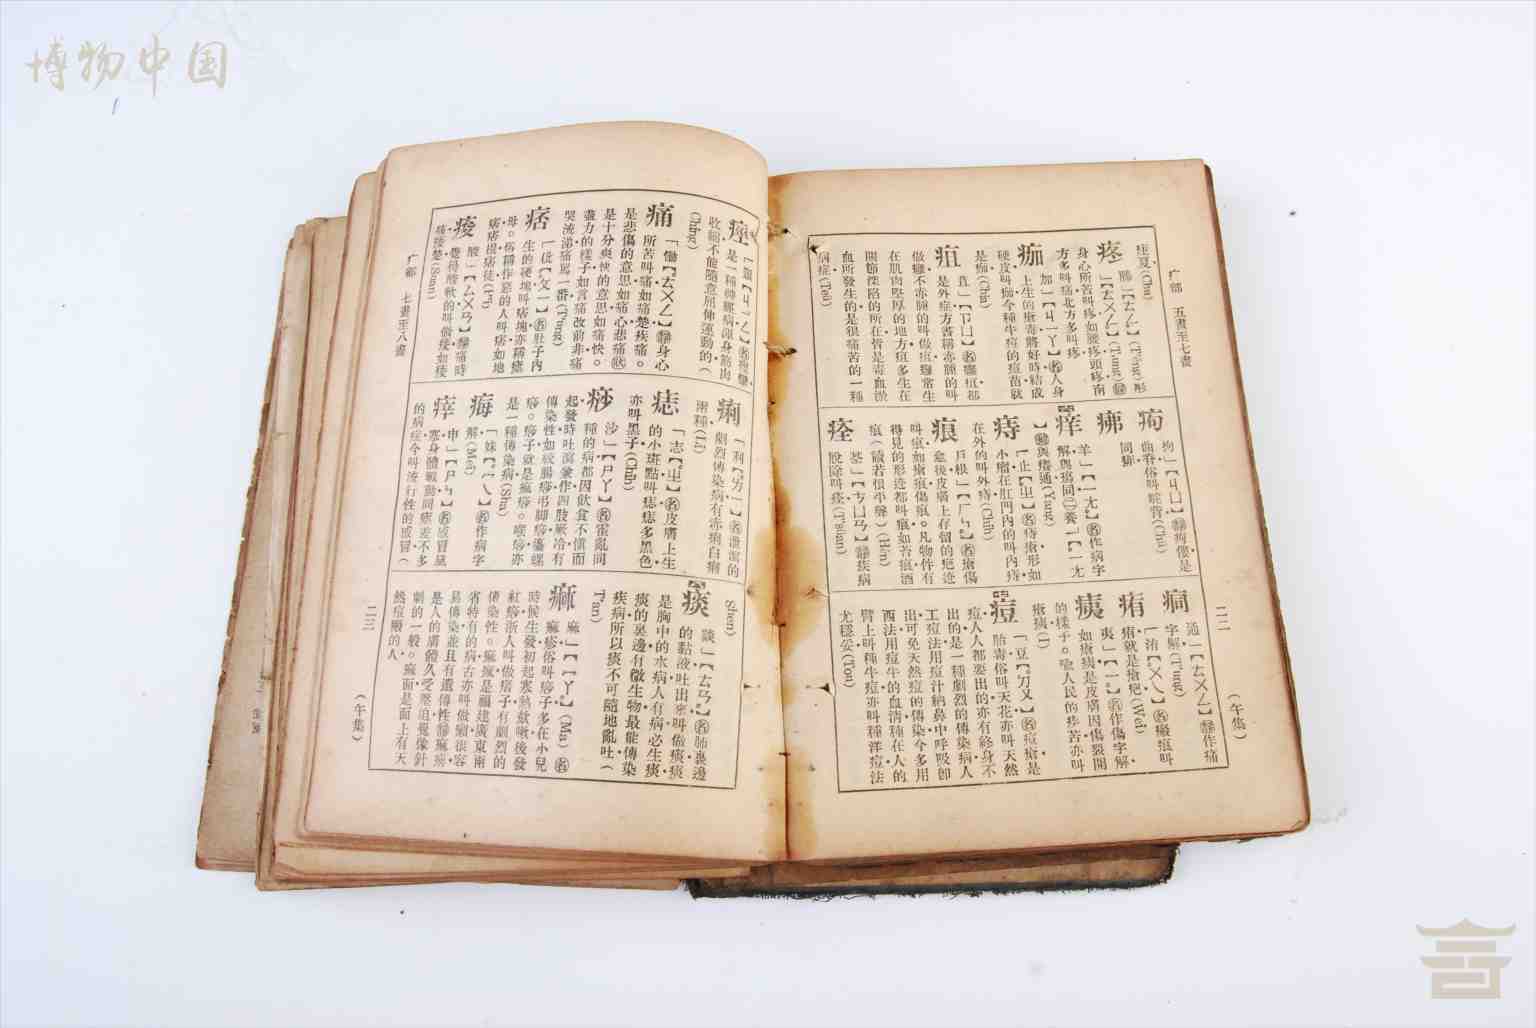 博物中国
疒部 五畫至七畫 二二 (午集)
疰夏(Chu)
疼
身心所苦叫疼如腰疼頭疼南
方多叫痛北方多叫疼
痂 加」【ㄐㄧㄚ】㊔人身
上生的瘡毒將好時結成
硬皮叫痂今種牛痘的痘苗就
是痂(Chia)
疽
是外症方書稱赤腫的叫
做癰不赤腫的叫做疽癰常生
在肌肉堅厚的地方疽多生在
關節深陷的所在皆是毒血淤
血所發生的是很痛苦的一種
病症(Tsü)
痀
曲脊俗叫駝背(Chü)
痱
同
痒 羊」【ㄧㄤ】㊔作病字
解與瘍同㊁養」【ㄧㄤ
與癢通(Yang)
痔 「止【ㄓ】㊔痔瘡形如
小瘤在肛門內的叫內痔
在外的叫外痔(Chih)
痕
愈後皮膚上存留的疤迹
叫痕如瘡痕傷痕。凡物件有
得見的形迹都叫痕如苔痕酒
痕(讀若恨平聲)(Hên)
痊
脫除叫痊(Ts'üan)
痌 通」【ㄊㄨㄥ】
字解(T'ung)
痏
痏就是瘡疤(Wei)
痍 夷」【ㄧ】㊔作傷字解
如瘡痍是皮膚因傷裂開
的樣子。喩人民的疾苦亦叫
瘡痍(I)
痘 「豆【ㄉㄡ】㊔痘瘡是
胎毒俗叫天花亦叫天然
痘人人都要出的亦有終身不
出的是一種劇烈的傳染病人
工痘法用痘汁納鼻中呼吸卽
出可免天然痘的傳染今多用
西法用痘牛的血淸種在人的
臂上叫種牛痘亦叫種洋痘法
尤穩妥(Tou)
痙
是一種神經病渾身筋肉
收縮不能隨意屈伸運動的(
Ching)
痛 「慟【ㄊㄨㄥ】身心
所苦叫痛如痛楚疾痛。
是悲傷的意思如痛心悲痛
是十分爽快的意思如痛快。
盡力的樣子如言痛改前非痛
哭流涕痛罵一番(T'ung)
痞
生的硬塊叫痞塊亦稱瘧
母。俗稱作惡的人叫痞如地
痞痞棍痞徒(P'i)
痠 酸」【ㄙㄨㄢ】痛時
覺得疲軟的叫做痠如痠
痛痠楚(Suan)
痢 「利【ㄌㄧ】㊔泄瀉的
劇烈傳染病有赤痢白痢
兩種(Li)
痣 「志【ㄓ】㊔皮膚上生
的小斑點叫痣痣多黑色
亦叫黑子(Chih)
痧 沙」【ㄕㄚ】㊔霍亂同
種的病都因飲食不愼而
起發時吐瀉兼作四肢厥冷有
傳染性如絞腸痧吊脚痧
痧。痧子就是瘋疹。喉痧亦
是一種傳染病(Sha)
痗 「妹【ㄇㄟ】㊔作病字
解(Mei)
㾕 申」【ㄕㄣ】㊔感冒風
寒身體戰動同瘧差不多
的病症今叫流行性的感冒(
Shên)
痰 談」【ㄊㄢ】㊔肺裏邊
的黏液吐出來叫做痰痰
是胸中的水病人有病必生痰
痰的裏邊有微生物最能傳染
疾病所以痰不可隨地亂吐(
T'an)
痲 麻」【ㄇㄚ】(Ma)㊔
痲疹俗叫痧子多在小兒
時候生發初起寒熱欬嗽後發
紅疹浙人叫做瘄子有劇烈的
傳染性。痲瘋是福建廣東兩
省特有的病古亦叫做癩很容
易傳染並且有遺傳性
是人的膚體久受壓迫覺像針
刺的一般。痲面是面上有天
然痘瘢的人
疒部 七畫至八畫 二三 (午集)